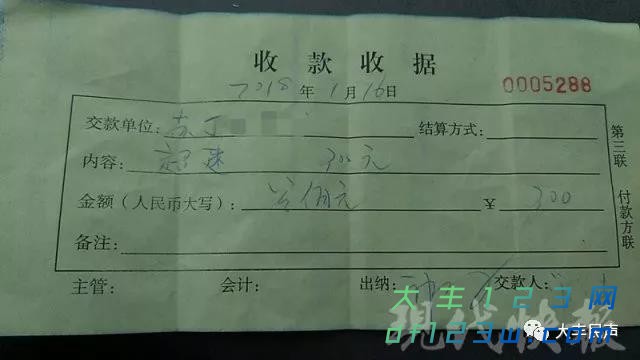 收款收据
2018年1月16日 0005288
交款单位: 苏J 结算方式:
内容: 超速 300元
金额(人民币大写): 叁佰元 ¥ 300
备注:
主管: 会计: 出纳: 交款人:
第三联 付款方联
大丰123网
df123w.com
现代快报
大丰民声